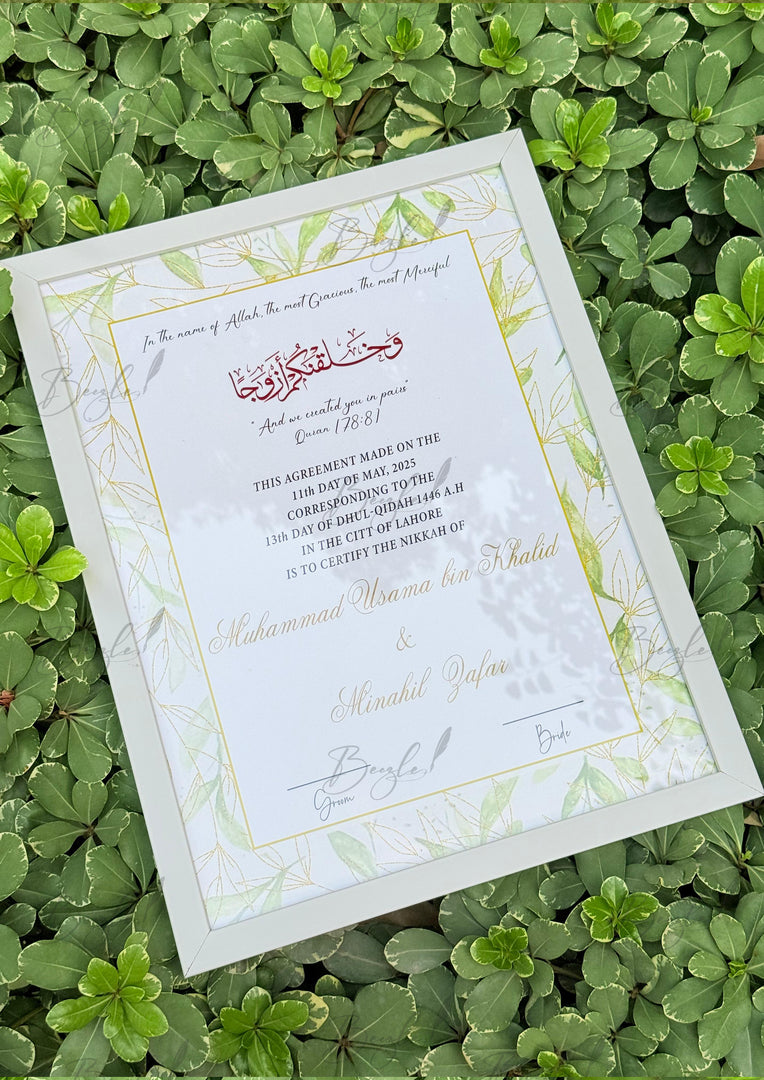 In the name of Allah, the most Gracious, the most Merciful
وَخَلَقْنَٰكُمْ أَزْوَٰجًا
"And we created you in pairs"
Quran [78:8]
THIS AGREEMENT MADE ON THE
11th DAY OF MAY, 2025
CORRESPONDING TO THE
13th DAY OF DHUL-QIDAH 1446 A.H
IN THE CITT OF LAHORE
IS TO CERTIFY THE NIKKAH OF
Muhammad Usama bin Khalid
&
Minahil Zafar
Bride
Groom
Beezle!